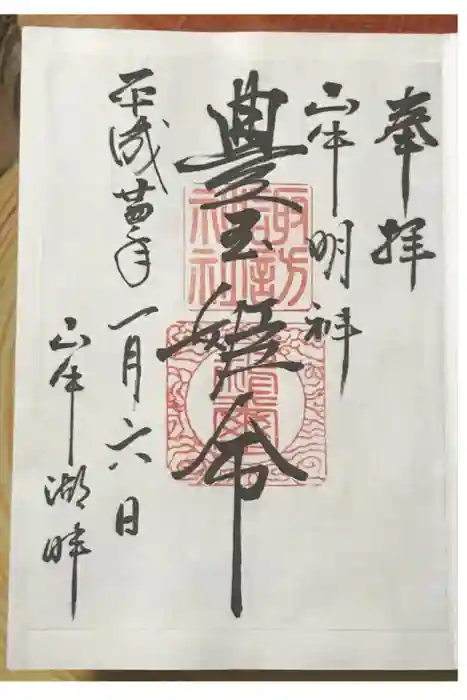 奉拝
山中明神
豊玉姫命
諏訪
神社
平成廿四年一月六日
山中湖畔